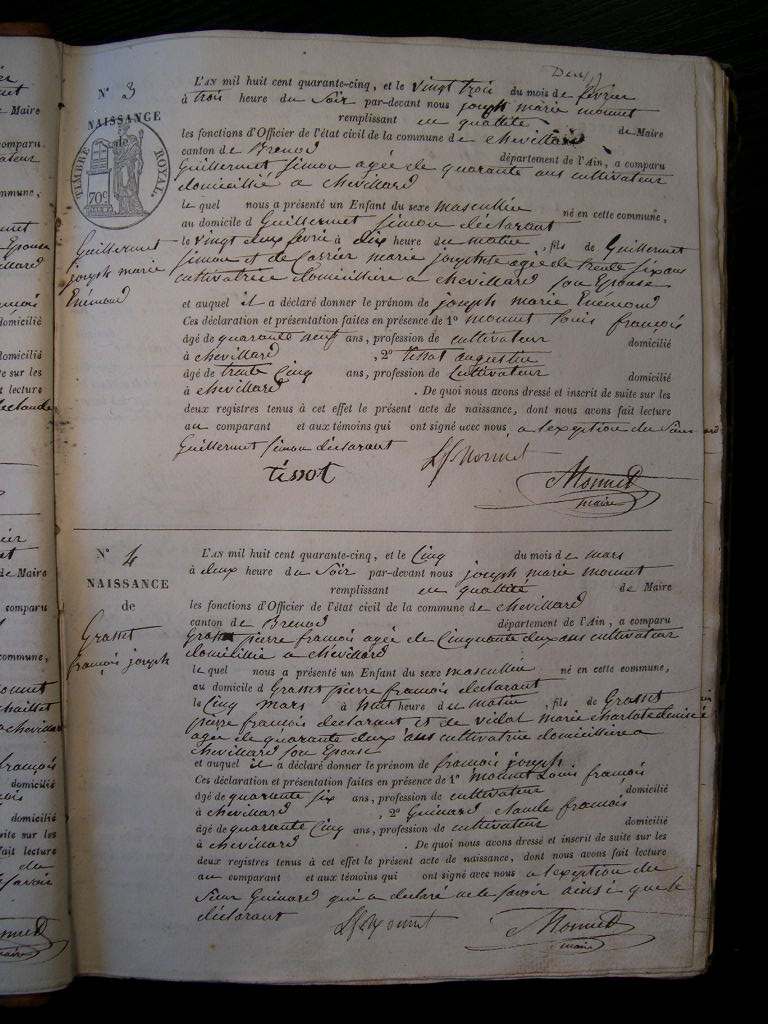 Deux
N° 3
NAISSANCE
de
TIMBRE ROYAL
70c
Guillermet
joseph marie
Enémond
L'AN mil huit cent quarante-cinq, et le vingt trois du mois de février
à trois heure du Soir par-devant nous joseph marie monnet
remplissant en quallité de Maire
les fonctions d'Officier de l'état civil de la commune de chevillard
canton de Brenod département de l'Ain, a comparu
Guillermet Simon agée de quarante ans cultivateur
domicillié a chevillard
le quel nous a présenté un Enfant du sexe mascullin né en cette commune,
au domicile d Guillermet Simon déclarant
le vingt deux fevrie à dix heure du matin, fils de Guillermet
Simon et de Carrier marie josephte agée de trente six ans
cultivatrice domicilière a chevillard Son Epouse
et auquel il a déclaré donner le prénom de joseph marie Enémond
Ces déclaration et présentation faites en présence de 1° monnet Louis françois
âgé de quarante neuf ans, profession de cultivateur domicilié
à chevillard, 2° tissot augustin
âgé de trente Cinq ans, profession de Cultivateur domicilié
à chevillard. De quoi nous avons dressé et inscrit de suite sur les
deux registres tenus à cet effet le présent acte de naissance, dont nous avons fait lecture
au comparant et aux témoins qui ont signé avec nous a lexeption du Sieur
Guillermet Simon déclarant
tissot
Ls Monnet
Monnet
maire
N° 4
NAISSANCE
de
Grasset
françois joseph
L'AN mil huit cent quarante-cinq, et le Cinq du mois de mars
à deux heure du Soir par-devant nous joseph marie monnet
remplissant en quallité de Maire
les fonctions d'Officier de l'état civil de la commune de chevillard
canton de Brenod département de l'Ain, a comparu
Grasset pierre francois agée de Cinquante deux ans cultivateur
domicillié a chevillard
le quel nous a présenté un Enfant du sexe mascullin né en cette commune,
au domicile d Grasset pierre francois declarant
le Cinq mars à huit heure du matin, fils de Grasset
pierre francois declarant et de vidal marie charlote denise
agee de quarante deux ans cultivatrice domicilière a
chevillard Son Epouse
et auquel il a déclaré donner le prénom de françois joseph
Ces déclaration et présentation faites en présence de 1° monnet Louis françois
âgé de quarante six ans, profession de cultivateur domicilié
à chevillard, 2° Guinard claude francois
âgé de quarante Cinq ans, profession de cultivateur domicilié
à chevillard. De quoi nous avons dressé et inscrit de suite sur les
deux registres tenus à cet effet le présent acte de naissance, dont nous avons fait lecture
au comparant et aux témoins qui ont signé avec nous a lexeption du
Sieur Guinard qui a declaré ne le savoir ainsi que le
déclarant
Ls Monnet
Monnet
maire